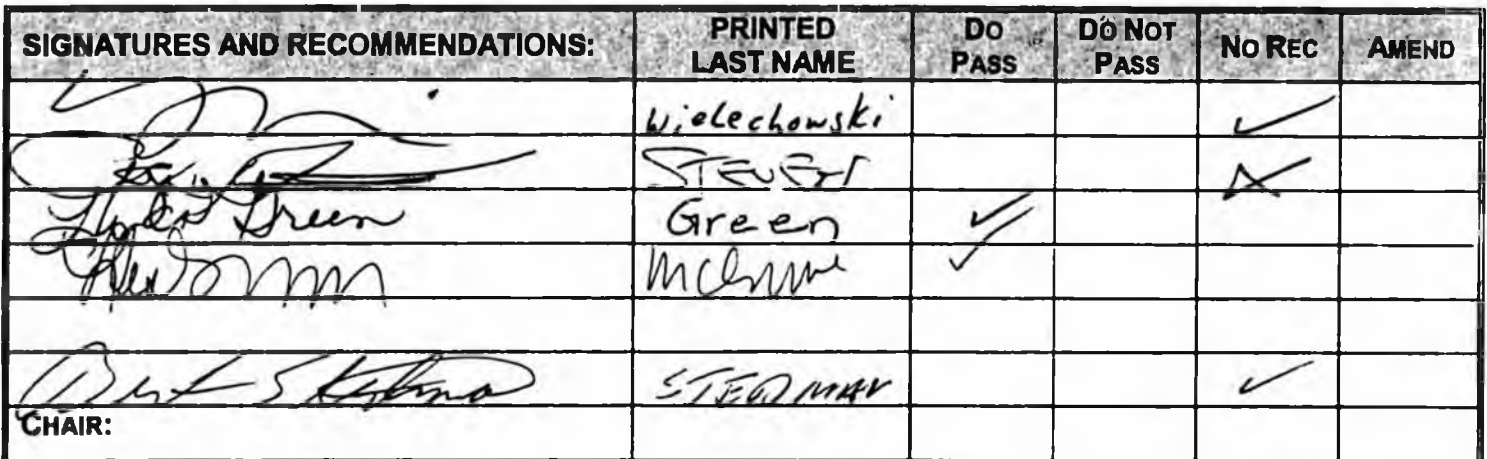 SIGNATURES AND RECOMMENDATIONS: PRINTED LAST NAME DO PASS DO NOT PASS NO REC AMEND
Wielechowski ✓
STEVENS
Green Green ✓
✓
Bert Stedman STEDMAN ✓
CHAIR: